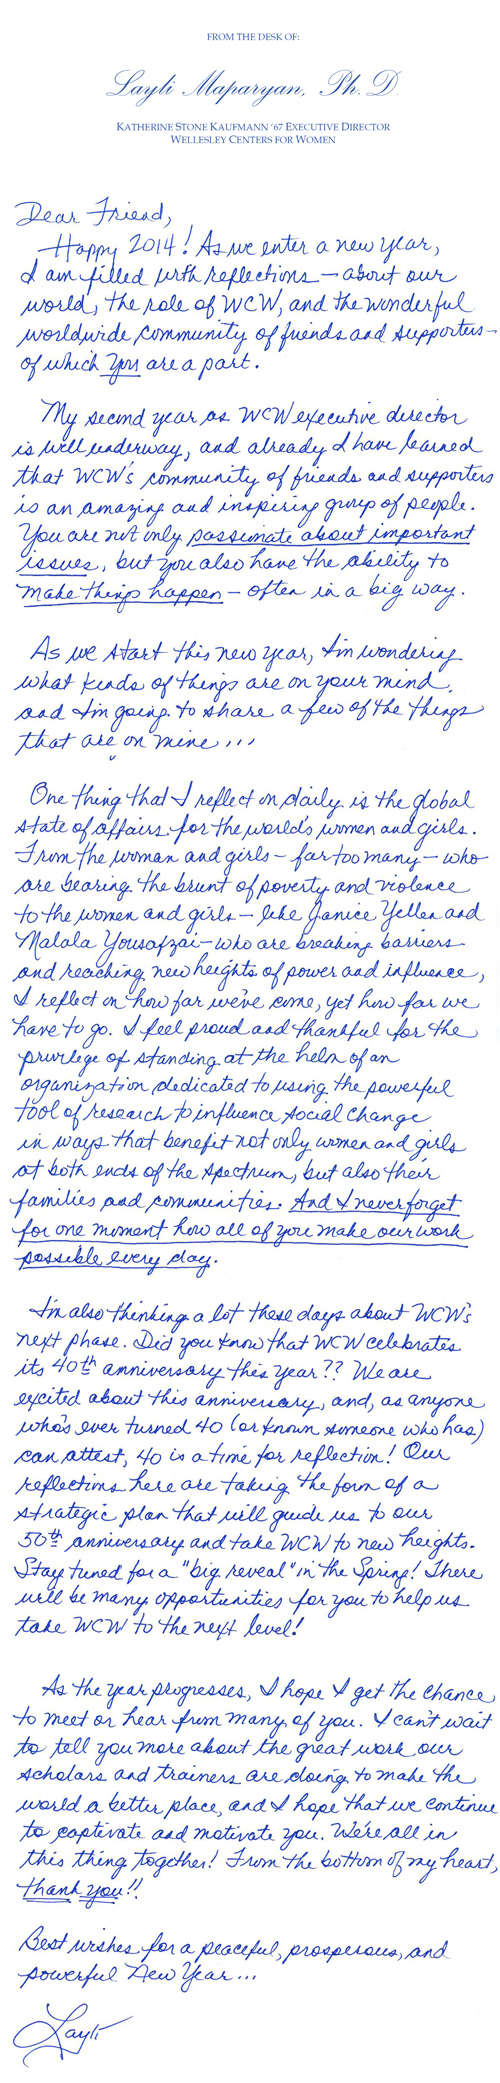 FROM THE DESK OF:
Layli Maparyan, Ph.D.
KATHERINE STONE KAUFMANN '67 EXECUTIVE DIRECTOR
WELLESLEY CENTERS FOR WOMEN
Dear Friend,
Happy 2014! As we enter a new year,
I am filled with reflections – about our
world, the role of WCW, and the wonderful
worldwide community of friends and supporters –
of which you are a part.
My second year as WCW executive director
is well underway, and already I have learned
that WCW's community of friends and supporters
is an amazing and inspiring group of people.
You are not only passionate about important
issues, but you also have the ability to
make things happen – often in a big way.
As we start this new year, I'm wondering
what kinds of things are on your mind,
and I'm going to share a few of the things
that are on mine...
One thing that I reflect on daily is the global
state of affairs for the world's women and girls.
From the woman and girls – far too many – who
are bearing the brunt of poverty and violence
to the women and girls – like Janice Yellen and
Malala Yousafzai – who are breaking barriers
and reaching new heights of power and influence,
I reflect on how far we've come, yet how far we
have to go. I feel proud and thankful for the
privilege of standing at the helm of an
organization dedicated to using the powerful
tool of research to influence social change
in ways that benefit not only women and girls
at both ends of the spectrum, but also their
families and communities. And I never forget
for one moment how all of you make our work
possible every day.
I'm also thinking a lot these days about WCW's
next phase. Did you know that WCW celebrates
its 40th anniversary this year?? We are
excited about this anniversary, and, as anyone
who's ever turned 40 (or known someone who has)
can attest, 40 is a time for reflection! Our
reflections here are taking the form of a
strategic plan that will guide us to our
50th anniversary and take WCW to new heights.
Stay tuned for a "big reveal" in the Spring! There
will be many opportunities for you to help us
take WCW to the next level!
As the year progresses, I hope I get the chance
to meet or hear from many of you. I can't wait
to tell you more about the great work our
scholars and trainers are doing to make the
world a better place, and I hope that we continue
to captivate and motivate you. We're all in
this thing together! From the bottom of my heart,
thank you!!
Best wishes for a peaceful, prosperous, and
powerful New Year...
Layli